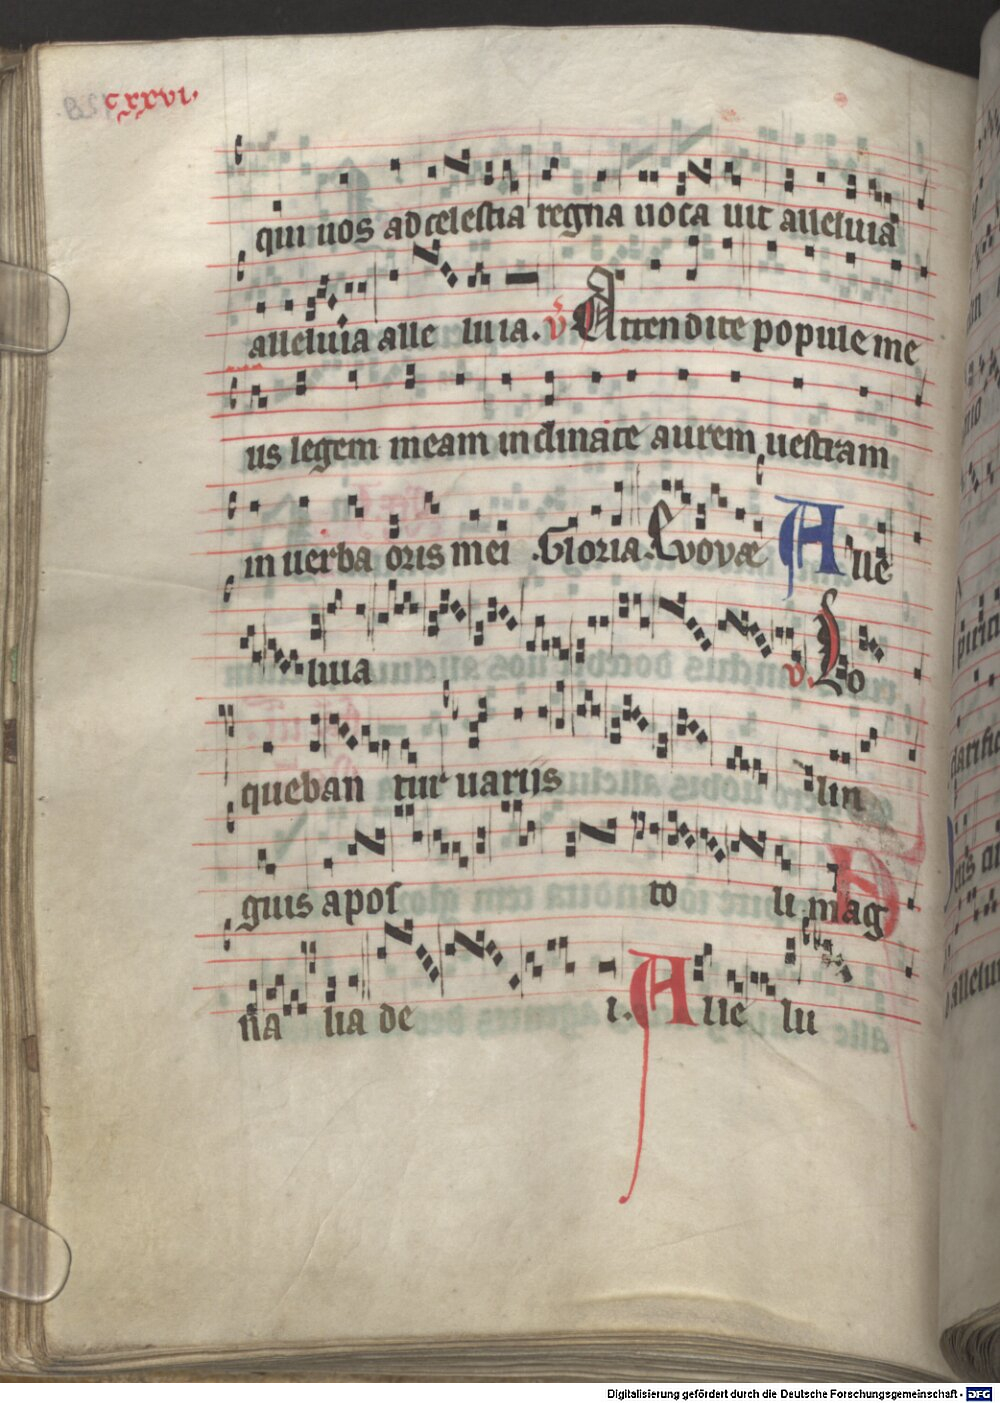 cxxvi.
qui uos ad celestia regna uoca uit alleluia
alleluia alle luia. v Attendite popule me
us legem meam inclinate aurem uestram
in uerba oris mei .Gloria. Euovae Alle
luia v. Lo
queban tur uariis lin
guis apos to li mag
na lia de i. Alle lu
Digitalisierung gefördert durch die Deutsche Forschungsgemeinschaft - DFG